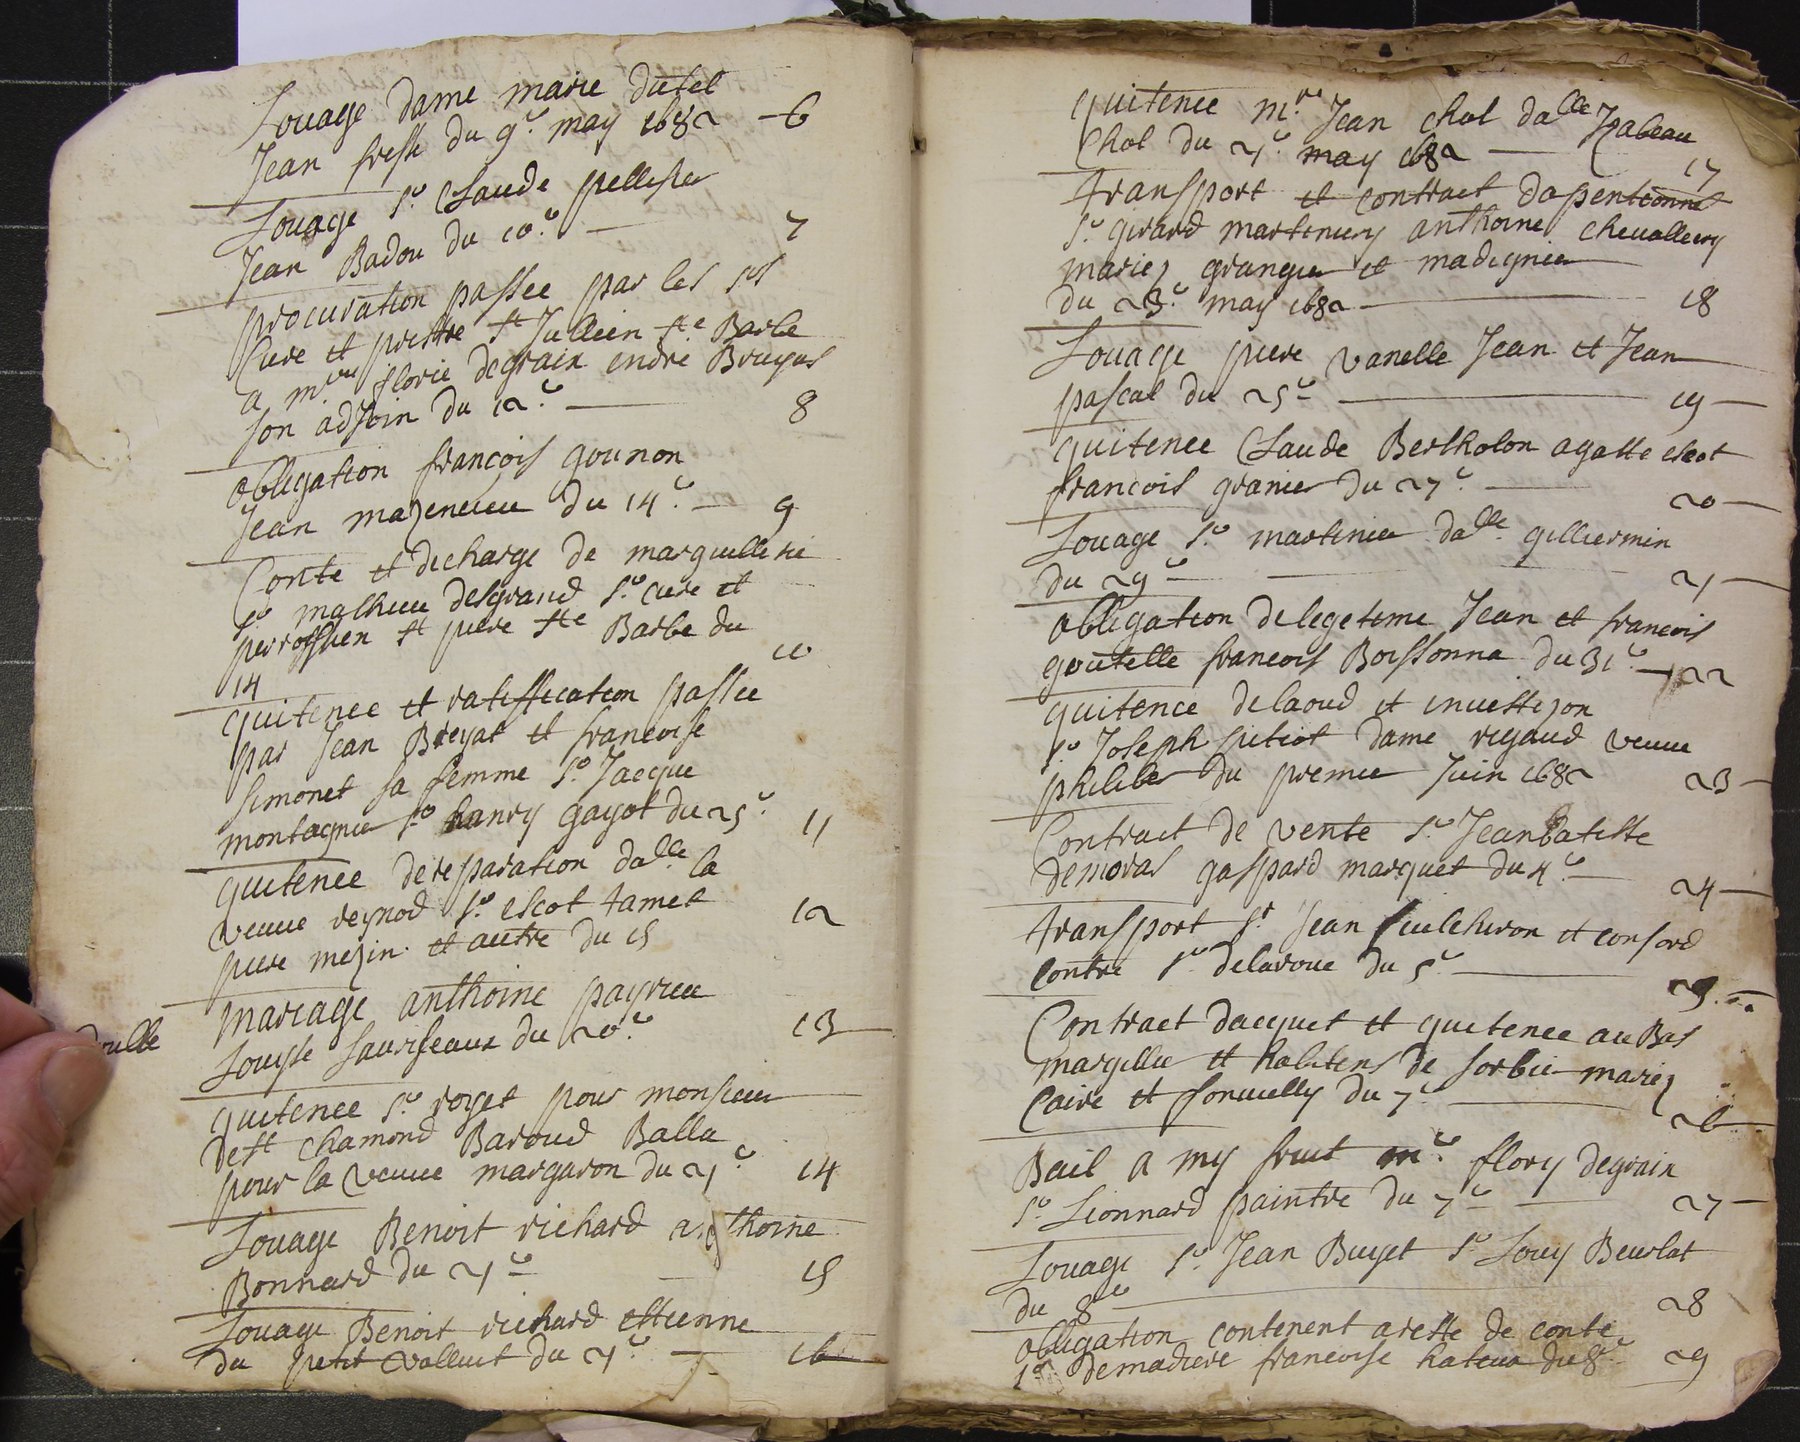 Louage dame marie dutel
Jean fresse du 9e. may 1682 — 6
Louage Sr. Claude pellissier
Jean Badou du 10e. — 7
procuration passée par les srs
Curé et prestre St Jullien Ste. Barbe
a m.re florie degrain endré Bruyas
son adjoin du 12e. — 8
obligation francois gounon
Jean mazeneuve du 14e. — 9
Conte et decharge de marguillerie
Sr mathieu desgrand Sr. curé et
parroissien St piere Ste Barbe du
14 10
quitence et ratiffication passée
par Jean Breyat et francoise
simonet sa femme Sr. Jacque
montagnier Sr hanry gayot du 25e. 11
quitence de reparation dalle la
veuve reynod Sr. escot tamet
piere mezin et autre du 15 12
mariage anthoine payrieu
Louise sauriseaux du 20e. 13
quitence Sr. royet pour monsieur
de St chamond Baroud Balla
pour la veuve margaron du 21e. 14
Louage Benoit richard anthoine
Bonnard du 21e — 15
Louage Benoit richard ettienne
du petit valluit du 21e. — 16
quitence m.re Jean chol dalle Izabeau
Chol du 21e. may 1682 — 17
transport et contract dapentionne
Sr. girard martiniery anthoine chevallery
mariez grangier et madignier
du 23e. may 1682 — 18
Louage piere vanelle Jean et Jean
pascal du 25e — 19 —
quitence Claude Bertholon agatte escot
francois granier du 27e. — 20 —
Louage Sr. martinier dalle. gilliermin
du 29e — 21 —
obligation de legetime Jean et francois
goutelle francois Boissonna du 31e. — 22
quitence de laoud et investizon
Sr. Joseph pitiot dame rigaud veuve
philiber du premier Juin 1682 23 —
Contract de vente Sr Jean batiste
demoras gaspard marquet du 4e — 24 —
transport Sr Jean et consord
contre Sr delaroue du 5e — 25
Contract dacquet et quitence au Bas
margillier et habitens de sorbier mariez
Caire et fonvielly du 7e — 26
Bail a my fruit mre. flory degrain
Sr. Lionnard paintre du 7e — 27 —
Louage Sr. Jean Buyet Sr Louy Beurlat
du 8e — 28
obligation contenent areste de conte
Sr demadiere francoise hateux du 8e 29